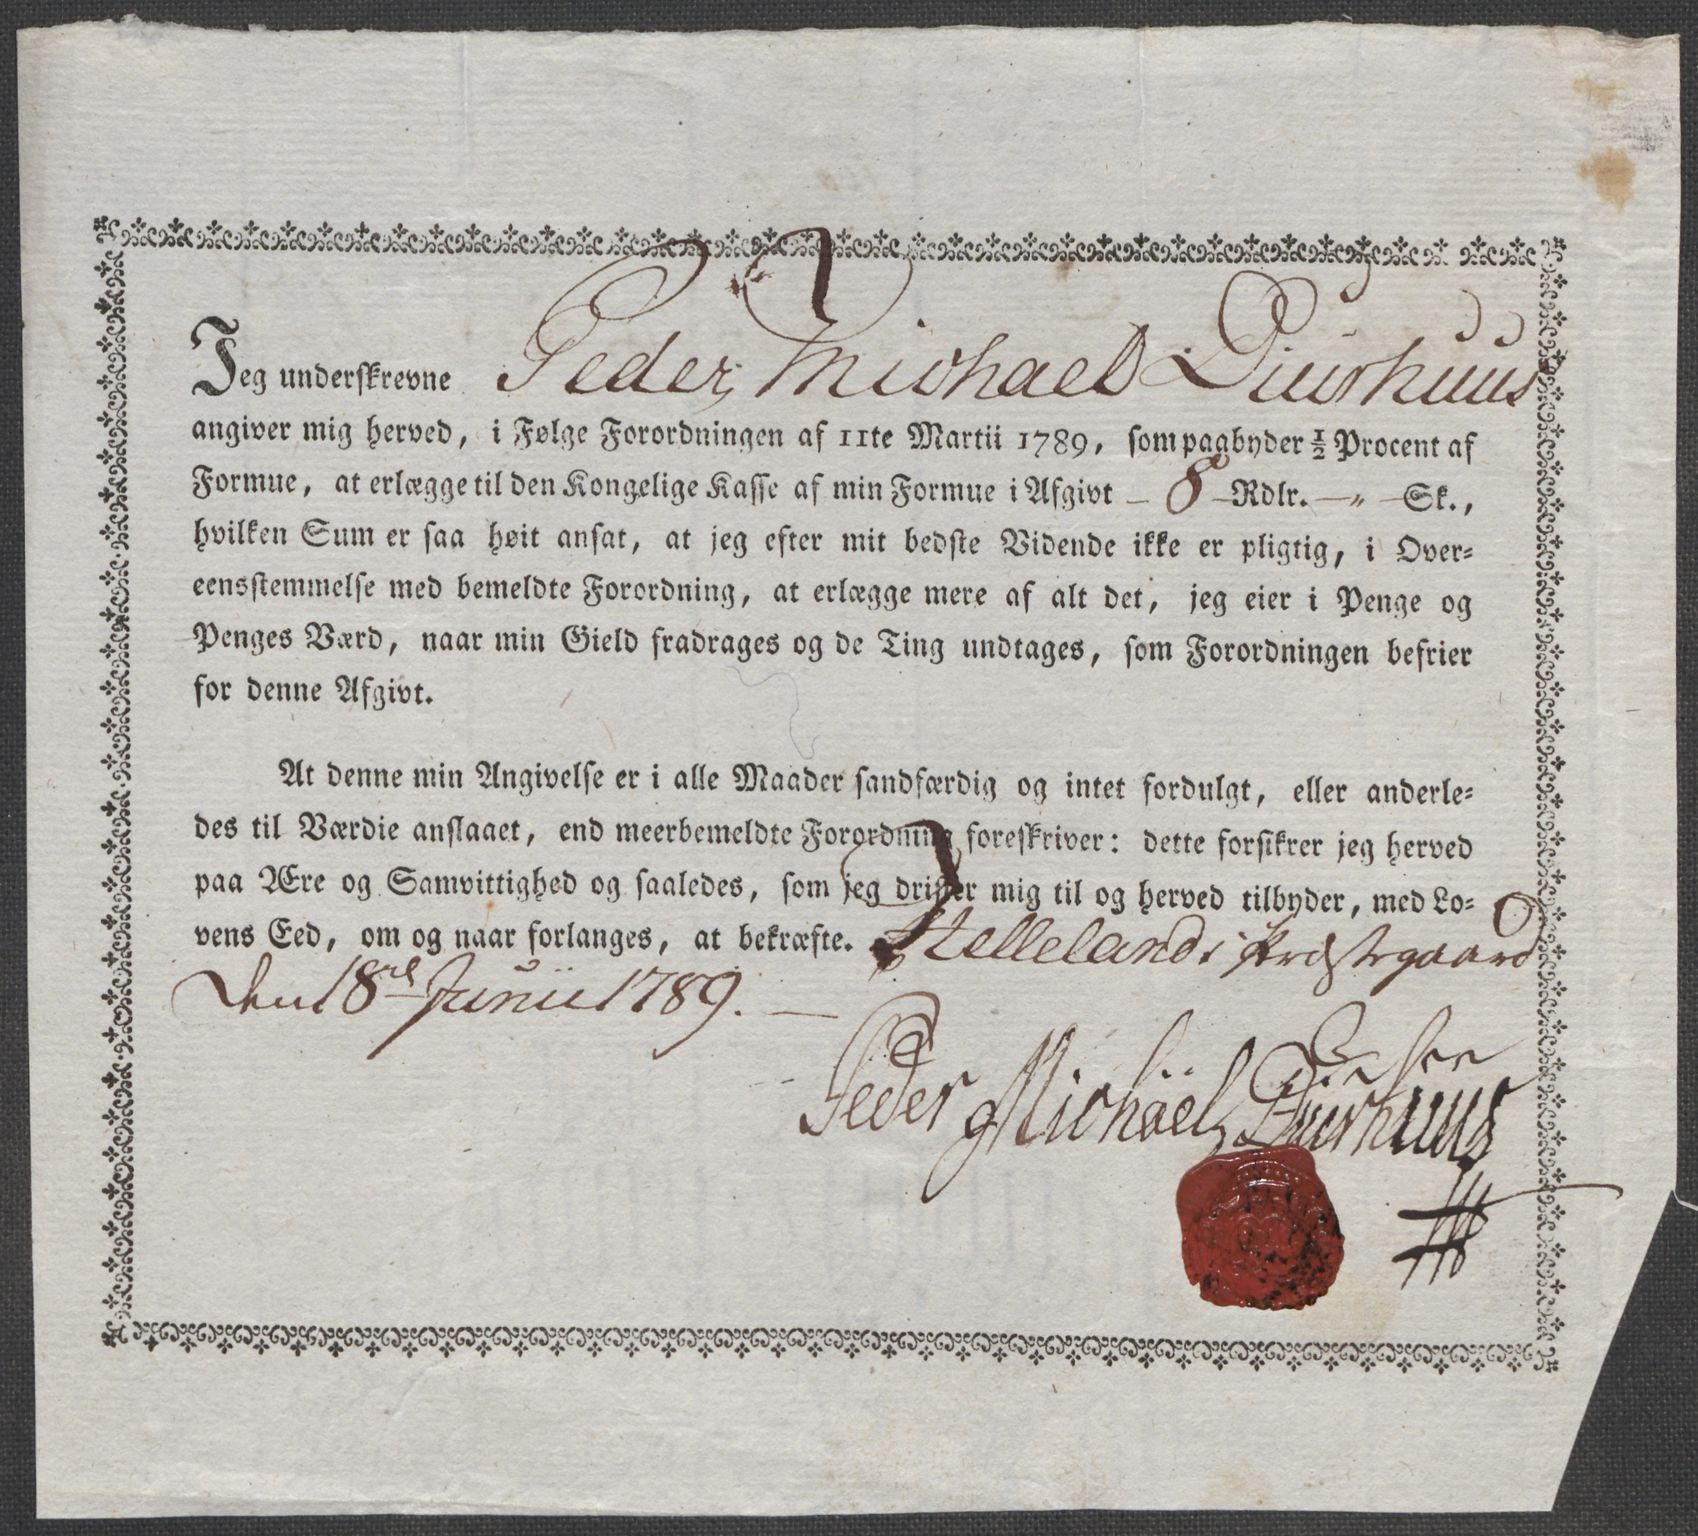 Jeg underskrevne Peder Michael Diurhuus
angiver mig herved, i Følge Forordningen af 11te Martii 1789, som paabyder ½ Procent af
Formue, at erlægge til den Kongelige Kasse af min Formue i Afgivt – 8 – Rdlr. – „ – Sk.,
hvilken Sum er saa høit ansat, at jeg efter mit bedste Vidende ikke er pligtig, i Over-
eensstemmelse med bemeldte Forordning, at erlægge mere af alt det, jeg eier i Penge og
Penges Værd, naar min Gield fradrages og de Ting undtages, som Forordningen befrier
for denne Afgivt.
At denne min Angivelse er i alle Maader sandfærdig og intet fordulgt, eller anderle-
des til Værdie anslaaet, end meerbemeldte Forordning foreskriver: dette forsikrer jeg herved
paa Ære og Samvittighed og saaledes, som jeg drister mig til og herved tilbyder, med Lo-
vens Eed, om og naar forlanges, at bekræfte. Hellelands Præstegaard
den 18de Junii 1789. —
Peder Michäel Diurhuus